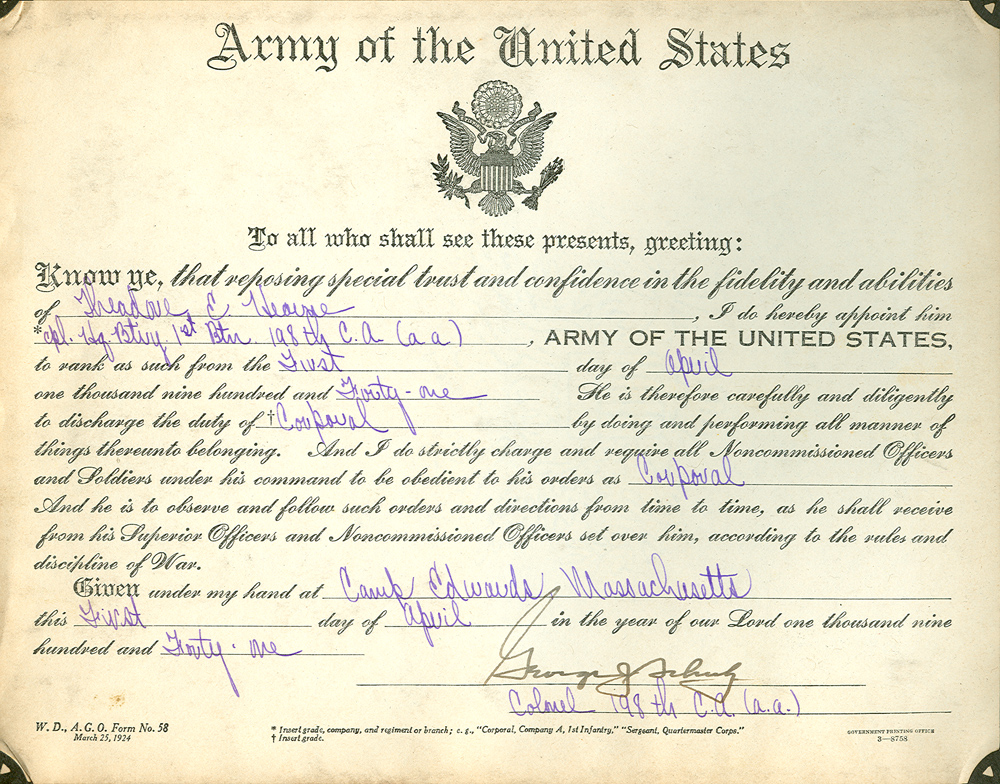 Army of the United States
To all who shall see these presents, greeting:
Know ye, that reposing special trust and confidence in the fidelity and abilities
of Theadore E , I do hereby appoint him
*cpl. Hq. Btry. 1st Btn. 198th C.A. (a a) , ARMY OF THE UNITED STATES,
to rank as such from the First day of April
one thousand nine hundred and Forty-one He is therefore carefully and diligently
to discharge the duty of †Corporal by doing and performing all manner of
things thereunto belonging. And I do strictly charge and require all Noncommissioned Officers
and Soldiers under his command to be obedient to his orders as Corporal
And he is to observe and follow such orders and directions from time to time, as he shall receive
from his Superior Officers and Noncommissioned Officers set over him, according to the rules and
discipline of War.
Given under my hand at Camp Edwards Massachusetts
this First day of April in the year of our Lord one thousand nine
hundred and Forty-one
George J Schulz
Colonel 198th C.A. (a.a.)
W. D., A. G. O. Form No. 58
March 25, 1924
* Insert grade, company, and regiment or branch; e. g., "Corporal, Company A, 1st Infantry," "Sergeant, Quartermaster Corps."
† Insert grade.
GOVERNMENT PRINTING OFFICE
3—8758